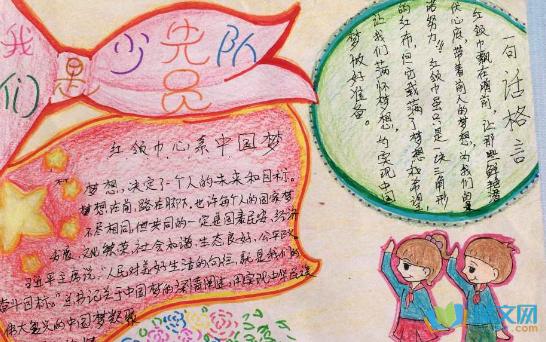 我们是少先队员
红领巾心系中国梦
梦想,决定了一个人的未来和目标。
梦想在前,路在脚下,也许每个人的国家梦
不尽相同,但共同的一定是国泰民安、经济
文化繁荣,社会和谐,生态良好,公平
习近平主席说:"人民对美好生活的向往,就是我们的
奋斗目标。"总书记关于中国梦的深情阐述,用实现中华
伟大复兴的中国梦
一句话格言
红领巾飘在胸前,让那些鲜艳
伏心底,带着前人的梦想,为我们的
路努力!红领巾虽只是一块三角形
的红布,但它载满了梦想和希望,
让我们满怀梦想,为实现中国
梦做好准备。
文网